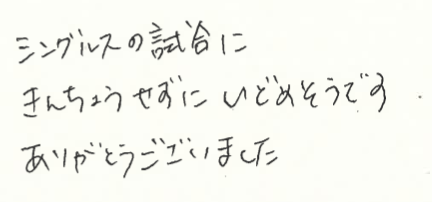 シングルスの試合に
きんちょうせずにいどめそうです.
ありがとうございました